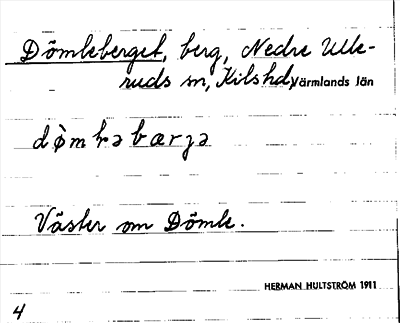 Dömleberget, berg, Nedre Ulle-
ruds sn, Kilshd, Värmlands län
Väster om Dömle.
HERMAN HULTSTRÖM 1911
4